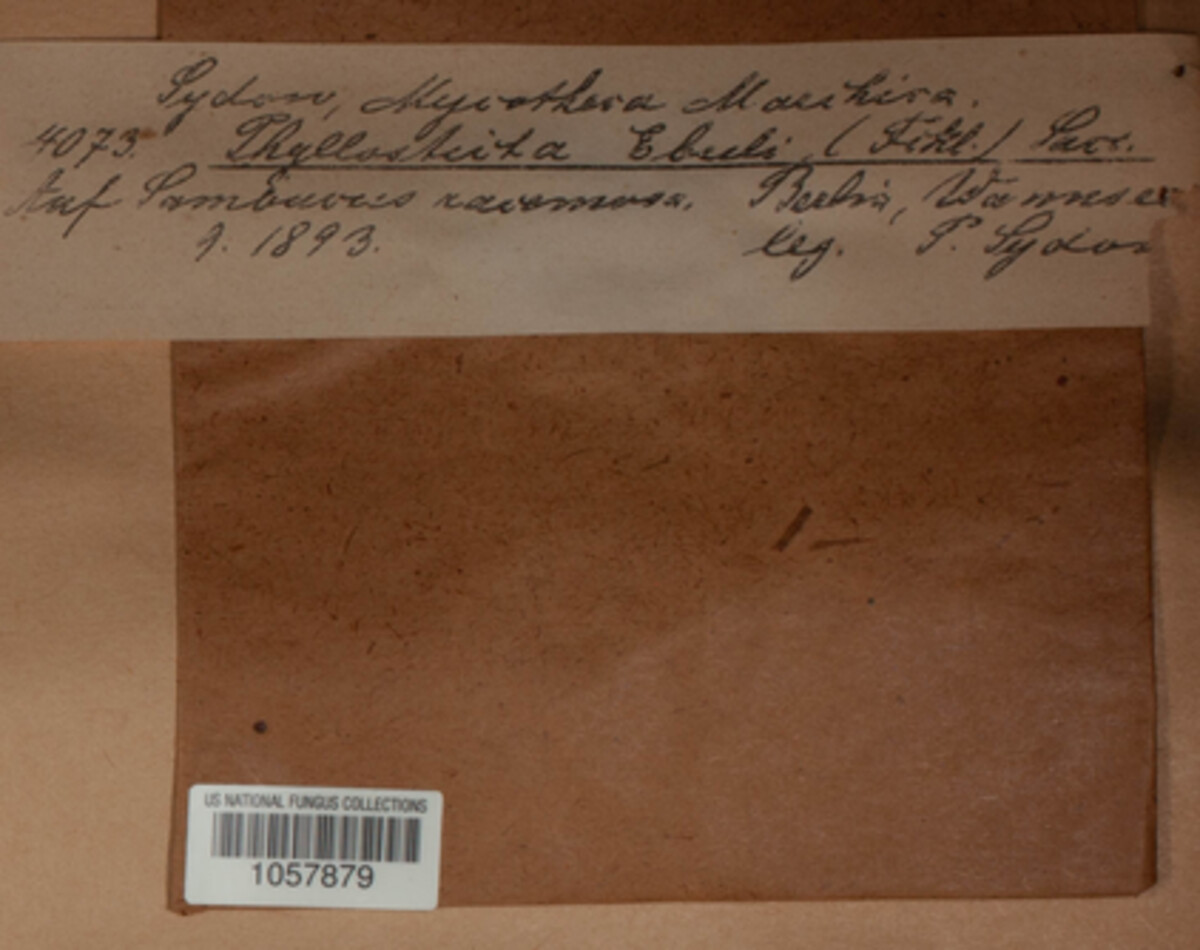 Sydow, Mycotheca Marchica.
4073. Phyllosticta Ebuli, (Fckl.) Sacc.
Auf Sambucus racemosa. Berlin, Wannsee
1893. leg. P. Sydow
US NATIONAL FUNGUS COLLECTIONS
1057879